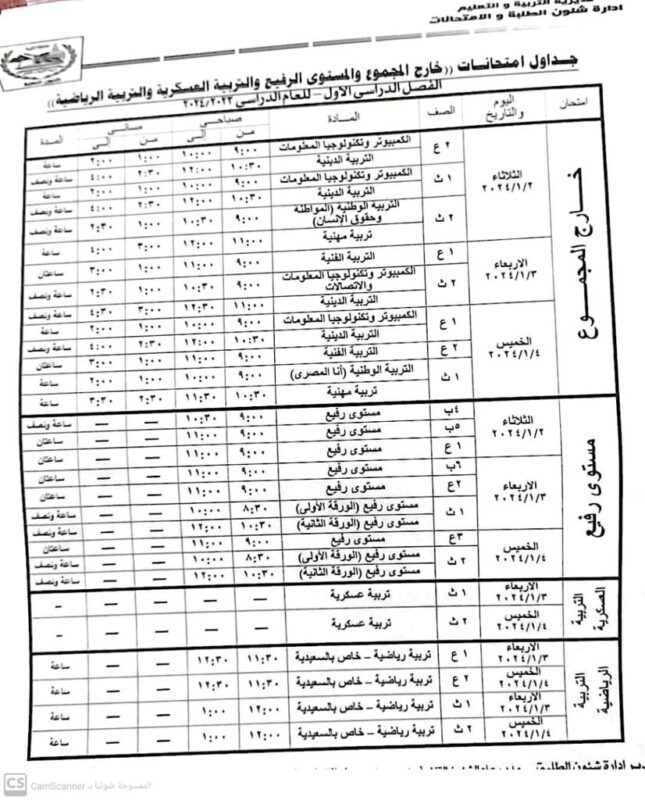 مديرية التربية و التعليم
ادارة شئون الطلبة و الامتحانات
جداول امتحانات ((خارج المجموع والمستوى الرفيع والتربية العسكرية والتربية الرياضية))
الفصل الدراسى الأول – للعام الدراسى ٢٠٢٤/٢٠٢٣
امتحان اليوم والتاريخ الصف المادة صباحي من إلى مسائي من إلى المدة
خارج المجموع
الثلاثاء ٢٠٢٤/١/٢
٢ ع الكمبيوتر وتكنولوجيا المعلومات ٩:٠٠ ١٠:٠٠ ١:٠٠ ٢:٠٠ ساعة
التربية الدينية ١٠:٣٠ ١٢:٠٠ ٢:٣٠ ٤:٠٠ ساعة ونصف
١ ث الكمبيوتر وتكنولوجيا المعلومات ٩:٠٠ ١٠:٠٠ ١:٠٠ ٢:٠٠ ساعة
التربية الدينية ١٠:٣٠ ١٢:٠٠ ٢:٣٠ ٤:٠٠ ساعة ونصف
٢ ث التربية الوطنية (المواطنة وحقوق الانسان) ٩:٠٠ ١٠:٣٠ ١:٠٠ ٢:٣٠ ساعة ونصف
تربية مهنية ١١:٠٠ ١٢:٠٠ ٣:٠٠ ٤:٠٠ ساعة
الاربعاء ٢٠٢٤/١/٣
١ ع التربية الفنية ٩:٠٠ ١١:٠٠ ١:٠٠ ٣:٠٠ ساعتان
٢ ث الكمبيوتر وتكنولوجيا المعلومات والاتصالات ٩:٠٠ ١٠:٣٠ ١:٠٠ ٢:٣٠ ساعة ونصف
التربية الدينية ١١:٠٠ ١٢:٣٠ ٣:٠٠ ٤:٣٠ ساعة ونصف
الخميس ٢٠٢٤/١/٤
١ ع الكمبيوتر وتكنولوجيا المعلومات ٩:٠٠ ١٠:٠٠ ١:٠٠ ٢:٠٠ ساعة
التربية الدينية ١٠:٣٠ ١٢:٠٠ ٢:٣٠ ٤:٠٠ ساعة ونصف
٢ ع التربية الفنية ٩:٠٠ ١١:٠٠ ١:٠٠ ٣:٠٠ ساعتان
١ ث التربية الوطنية (أنا المصرى) ٩:٠٠ ١٠:٠٠ ١:٠٠ ٢:٠٠ ساعة
تربية مهنية ١٠:٣٠ ١١:٣٠ ٢:٣٠ ٣:٣٠ ساعة
مستوى رفيع
الثلاثاء ٢٠٢٤/١/٢
٤ب مستوى رفيع ٩:٠٠ ١٠:٣٠ — — ساعة ونصف
٥ب مستوى رفيع ٩:٠٠ ١١:٠٠ — — ساعتان
١ ع مستوى رفيع ٩:٠٠ ١١:٠٠ — — ساعتان
الاربعاء ٢٠٢٤/١/٣
٦ب مستوى رفيع ٩:٠٠ ١١:٠٠ — — ساعتان
٢ع مستوى رفيع ٩:٠٠ ١١:٠٠ — — ساعتان
١ ث مستوى رفيع (الورقة الأولى) ٨:٣٠ ١٠:٠٠ — — ساعة ونصف
مستوى رفيع (الورقة الثانية) ١٠:٣٠ ١٢:٠٠ — — ساعة ونصف
الخميس ٢٠٢٤/١/٤
٣ع مستوى رفيع ٩:٠٠ ١١:٠٠ — — ساعتان
٢ ث مستوى رفيع (الورقة الأولى) ٨:٣٠ ١٠:٠٠ — — ساعة ونصف
مستوى رفيع (الورقة الثانية) ١٠:٣٠ ١٢:٠٠ — — ساعة ونصف
التربية العسكرية
الاربعاء ٢٠٢٤/١/٣ ١ ث تربية عسكرية — — — — –
الخميس ٢٠٢٤/١/٤ ٢ ث تربية عسكرية — — — — –
التربية الرياضية
الاربعاء ٢٠٢٤/١/٣ ١ ع تربية رياضية – خاص بالسعيدية ١١:٣٠ ١٢:٣٠ — — ساعة
الخميس ٢٠٢٤/١/٤ ٢ ع تربية رياضية – خاص بالسعيدية ١١:٣٠ ١٢:٣٠ — — ساعة
الاربعاء ٢٠٢٤/١/٣ ١ ث تربية رياضية – خاص بالسعيدية ١٢:٠٠ ١:٠٠ — — ساعة
الخميس ٢٠٢٤/١/٤ ٢ ث تربية رياضية – خاص بالسعيدية ١٢:٠٠ ١:٠٠ — — ساعة
ير ادارة شئون الطلبة
CS الممسوحة ضوئيا بـ CamScanner